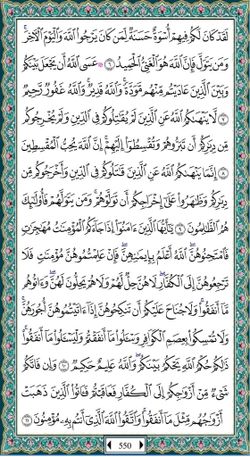 لَقَدۡ كَانَ لَكُمۡ فِيهِمۡ أُسۡوَةٌ حَسَنَةٞ لِّمَن كَانَ يَرۡجُواْ ٱللَّهَ وَٱلۡيَوۡمَ ٱلۡأٓخِرَۚ
وَمَن يَتَوَلَّ فَإِنَّ ٱللَّهَ هُوَ ٱلۡغَنِيُّ ٱلۡحَمِيدُ ٦ عَسَى ٱللَّهُ أَن يَجۡعَلَ بَيۡنَكُمۡ
وَبَيۡنَ ٱلَّذِينَ عَادَيۡتُم مِّنۡهُم مَّوَدَّةٗۚ وَٱللَّهُ قَدِيرٞۚ وَٱللَّهُ غَفُورٞ رَّحِيمٞ ٧
لَّا يَنۡهَىٰكُمُ ٱللَّهُ عَنِ ٱلَّذِينَ لَمۡ يُقَٰتِلُوكُمۡ فِي ٱلدِّينِ وَلَمۡ يُخۡرِجُوكُم
مِّن دِيَٰرِكُمۡ أَن تَبَرُّوهُمۡ وَتُقۡسِطُوٓاْ إِلَيۡهِمۡۚ إِنَّ ٱللَّهَ يُحِبُّ ٱلۡمُقۡسِطِينَ
٨ إِنَّمَا يَنۡهَىٰكُمُ ٱللَّهُ عَنِ ٱلَّذِينَ قَٰتَلُوكُمۡ فِي ٱلدِّينِ وَأَخۡرَجُوكُم مِّن
دِيَٰرِكُمۡ وَظَٰهَرُواْ عَلَىٰٓ إِخۡرَاجِكُمۡ أَن تَوَلَّوۡهُمۡۚ وَمَن يَتَوَلَّهُمۡ فَأُوْلَٰٓئِكَ
هُمُ ٱلظَّٰلِمُونَ ٩ يَٰٓأَيُّهَا ٱلَّذِينَ ءَامَنُوٓاْ إِذَا جَآءَكُمُ ٱلۡمُؤۡمِنَٰتُ مُهَٰجِرَٰتٖ
فَٱمۡتَحِنُوهُنَّۖ ٱللَّهُ أَعۡلَمُ بِإِيمَٰنِهِنَّۖ فَإِنۡ عَلِمۡتُمُوهُنَّ مُؤۡمِنَٰتٖ فَلَا
تَرۡجِعُوهُنَّ إِلَى ٱلۡكُفَّارِۖ لَا هُنَّ حِلّٞ لَّهُمۡ وَلَا هُمۡ يَحِلُّونَ لَهُنَّۖ وَءَاتُوهُم
مَّآ أَنفَقُواْۚ وَلَا جُنَاحَ عَلَيۡكُمۡ أَن تَنكِحُوهُنَّ إِذَآ ءَاتَيۡتُمُوهُنَّ أُجُورَهُنَّۚ
وَلَا تُمۡسِكُواْ بِعِصَمِ ٱلۡكَوَافِرِ وَسۡـَٔلُواْ مَآ أَنفَقۡتُمۡ وَلۡيَسۡـَٔلُواْ مَآ أَنفَقُواْۚ
ذَٰلِكُمۡ حُكۡمُ ٱللَّهِ يَحۡكُمُ بَيۡنَكُمۡۖ وَٱللَّهُ عَلِيمٌ حَكِيمٞ ١٠ وَإِن فَاتَكُمۡ
شَيۡءٞ مِّنۡ أَزۡوَٰجِكُمۡ إِلَى ٱلۡكُفَّارِ فَعَاقَبۡتُمۡ فَـَٔاتُواْ ٱلَّذِينَ ذَهَبَتۡ
أَزۡوَٰجُهُم مِّثۡلَ مَآ أَنفَقُواْۚ وَٱتَّقُواْ ٱللَّهَ ٱلَّذِيٓ أَنتُم بِهِۦ مُؤۡمِنُونَ ١١
550